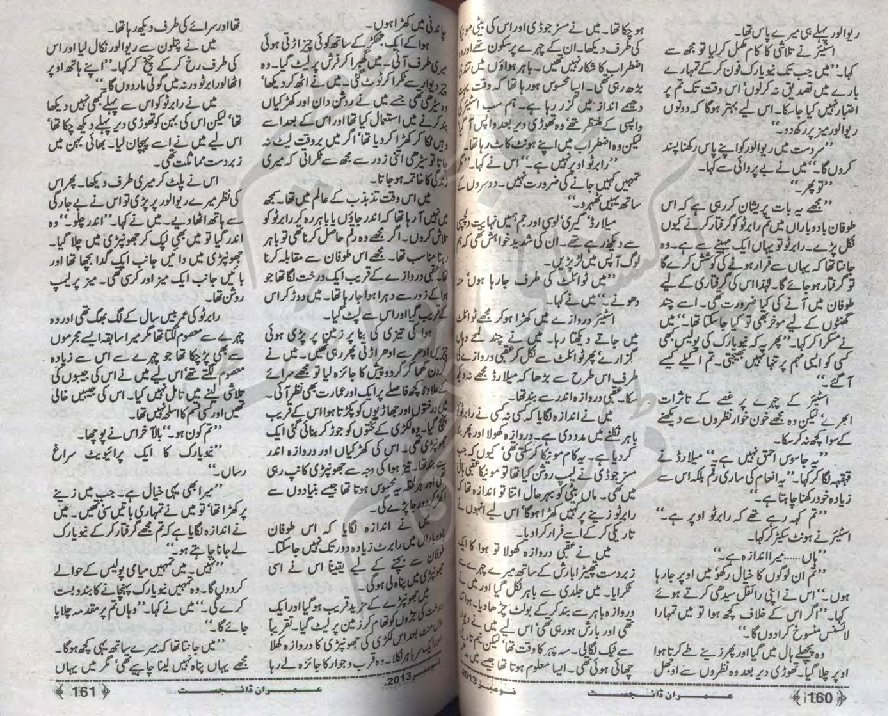 ریوالور پہلے ہی میرے پاس تھا۔
اسٹیئر نے تلاشی کا کام مکمل کر لیا تو مجھ سے
کہا۔ ”میں جب تک نیویارک فون کر کے تمہارے
بارے میں تصدیق نہ کر لوں اس وقت تک تم پر
اعتبار نہیں کیا جا سکتا۔ اس لیے بہتر ہوگا کہ دونوں
ریوالور میز پر رکھ دو۔“
”سردست میں ریوالور کو اپنے پاس رکھنا پسند
کروں گا۔“ میں نے بے پروائی سے کہا۔
”تو پھر“
”مجھے یہ بات پریشان کر رہی ہے کہ اس
طوفان باد و باراں میں تم رابرٹو کو گرفتار کرنے کیوں
نکل پڑے۔ رابرٹو تو یہاں ایک مہینے سے ہے۔ وہ
جانتا تھا کہ یہاں سے فرار ہونے کی کوشش کرے گا
تو گرفتار ہو جائے گا۔ لہٰذا اس کی گرفتاری کے لیے
طوفان میں آنے کی کیا ضرورت تھی۔ اسے چند
گھنٹوں کے لیے موخر بھی تو کیا جا سکتا تھا۔“ میں
نے مسکرا کر کہا۔ ”پھر یہ کہ نیویارک کی پولیس بھی
کسی کو ایسی مہم پر تنہا نہیں بھیجتی۔ تم اکیلے کیسے
آ گئے۔“
اسٹیئر کے چہرے پر غصے کے تاثرات
ابھرے لیکن وہ مجھے خون خوار نظروں سے دیکھنے
کے سوا کچھ نہ کر سکا۔
”یہ جاسوس احمق نہیں ہے۔“ میلارڈ نے
قہقہہ لگا کر کہا۔ ”یہ انعام کی ساری رقم بلکہ اس سے
زیادہ خود رکھنا چاہتا ہے۔“
”تم کہہ رہے تھے کہ رابرٹو اوپر ہے۔“
اسٹیئر نے ہونٹ سکیڑ کر کہا۔
”ہاں...... میرا اندازہ ہے۔“
”تم ان لوگوں کا خیال رکھو میں اوپر جا رہا
ہوں۔“ اس نے اپنی رائفل سیدھی کرتے ہوئے
کہا۔ ”اگر اس کے خلاف کچھ ہوا تو میں تمہارا
لائسنس منسوخ کرا دوں گا۔“
وہ پچھلے ہال میں گیا اور پھر زینے طے کرتا ہوا
اوپر چلا گیا۔ تھوڑی دیر بعد وہ نظروں سے اوجھل
ہو چکا تھا۔ میں نے مسز جوڈی اور اس کی بیٹی مونیکا
کی طرف دیکھا۔ ان کے چہرے پر سکون تھے اور وہ
اضطراب کا شکار نہیں تھیں۔ باہر ہواؤں میں تندی
بڑھ رہی تھی۔ ایسا محسوس ہو رہا تھا کہ وقت بہت
دھیمے انداز میں گزر رہا ہے۔ ہم سب اسٹیئر کی
واپسی کے منتظر تھے۔ وہ تھوڑی دیر بعد واپس آ گیا
لیکن وہ اضطراب میں اپنے ہونٹ کاٹ رہا تھا۔
”رابرٹو اوپر نہیں ہے۔“ اس نے کہا۔
تمہیں کہیں جانے کی ضرورت نہیں۔ دوسروں کے
ساتھ یہیں ٹھہرو۔“
میلارڈ، گیری، لوسی اور جم ہمیں نہایت دلچسپی
سے دیکھ رہے تھے۔ ان کی شدید خواہش تھی کہ ہم
لوگ آپس میں لڑ پڑیں۔
”میں ٹوائلٹ کی طرف جا رہا ہوں، منہ
دھونے۔“ میں نے کہا۔
اسٹیئر دروازے میں کھڑا ہو کر مجھے ٹوائلٹ
میں جاتے دیکھتا رہا۔ میں نے چند لمحے وہاں
گزارے پھر ٹوائلٹ سے نکل کر عقبی دروازے کی
طرف اس طرح سے بڑھا کہ میلارڈ مجھے نہ دیکھ
سکا۔ عقبی دروازہ اندر سے بند تھا۔
میں نے اندازہ لگایا کہ کسی نہ کسی نے رابرٹو کو
باہر نکلنے میں مدد دی ہے۔ دروازہ کھولا اور پھر بند
کر دیا ہے۔ یہ کام مونیکا کر سکتی تھی کیوں کہ جب
مسز جوڈی نے لیمپ روشن کیا تھا تو مونیکا عقبی ہال
میں تھی۔ ماں بیٹی کو بہر حال اتنا تو اندازہ تھا کہ
رابرٹو زینے پر نہیں کھڑا ہوگا اس لیے انہوں نے
تاریکی کر کے اسے فرار کرا دیا۔
میں نے عقبی دروازہ کھولا تو ہوا کا ایک
زبردست تھپیڑا بارش کے ساتھ میرے چہرے سے
ٹکرایا۔ میں جلدی سے باہر نکل گیا اور میں نے
دروازہ باہر سے بند کر کے بولٹ چڑھا دیا۔ ہوا تیز
تھی اور بارش ہو رہی تھی اس لیے میں نے
سے فیک لگا لی۔ سہ پہر کا وقت تھا لیکن
چھائی ہوئی تھی۔ ایسا معلوم ہوتا تھا جیسے میں
نومبر 2013
عمران ڈائجسٹ
160
چاندنی میں کھڑا ہوں۔
ہوا کے ایک جھکڑ کے ساتھ کوئی چیز اڑتی ہوئی
میری طرف آئی۔ میں گھبرا کر فرش پر لیٹ گیا۔ وہ
چیز دیوار سے ٹکرا کر ٹوٹ گئی۔ میں نے اٹھ کر دیکھا،
وہ سیڑھی تھی جسے میں نے روشن دان اور کھڑکیاں
بند کرنے میں استعمال کیا تھا اور اس کے بعد اسے
وہیں ٹکا کر کھڑا کر دیا تھا، اگر میں بروقت لیٹ نہ
جاتا تو سیڑھی اتنی زور سے مجھ سے ٹکراتی کہ میری
زندگی کا خاتمہ ہو جاتا۔
میں اس وقت تذبذب کے عالم میں تھا۔ سمجھ
میں نہیں آ رہا تھا کہ اندر جاؤں یا باہر رہ کر رابرٹو کو
تلاش کروں۔ اگر مجھے وہ رقم حاصل کرنا تھی تو باہر
رہنا مناسب تھا۔ مجھے اس طوفان سے مقابلہ کرنا
تھا۔ عقبی دروازے کے قریب ایک درخت لگا تھا جو
ہوا کے زور سے دہرا ہوا جا رہا تھا۔ میں دوڑ کر اس
کے قریب گیا اور اس سے لپٹ گیا۔
ہوا کی تیزی کی بنا پر زمین پر پڑی ہوئی
چیزیں ادھر سے ادھر اڑتی پھر رہی تھیں۔ میں نے
گردن گھما کر گردوپیش کا جائزہ لیا تو مجھے سرائے
کے علاوہ کچھ فاصلے پر ایک اور عمارت بھی نظر آئی۔
میں درختوں اور جھاڑیوں کو پکڑتا ہوا اس کے قریب
پہنچ گیا۔ وہ لکڑی کے تختوں کو جوڑ کر بنائی گئی ایک
جھونپڑی تھی۔ اس کی کھڑکیاں اور دروازہ اندر
سے بند تھا۔ تیز ہوا کی وجہ سے جھونپڑی کانپ رہی
تھی اور ہر لحظہ یہ محسوس ہوتا تھا جیسے بنیادوں سے
اکھڑ کر دور جا پڑے گی۔
میں نے اندازہ لگایا کہ اس طوفان
باد و باراں میں رابرٹ زیادہ دور تک نہیں جا سکتا۔
طوفان سے بچنے کے لیے یقیناً اس نے اسی
جھونپڑی میں پناہ لی ہوگی۔
میں جھونپڑے کے مزید قریب ہو گیا اور ایک
درخت کی جڑوں کو تھام کر زمین پر لیٹ گیا۔ تقریباً
منٹ بعد اس لکڑی کی جھونپڑی کا دروازہ کھلا
اور ایک سر باہر نکلا۔ وہ قرب و جوار کا جائزہ لے رہا
تھا اور سرائے کی طرف دیکھ رہا تھا۔
میں نے پتلون سے ریوالور نکال لیا اور اس
کی طرف رخ کر کے چیخ کر کہا۔ ”اپنے ہاتھ اوپر
اٹھا اور رابرٹو ورنہ میں گولی مار دوں گا۔
میں نے رابرٹو کو اس سے پہلے بھی نہیں دیکھا
تھا، لیکن اس کی بہن کو تھوڑی دیر پہلے دیکھ چکا تھا
اس لیے میں نے اسے پہچان لیا۔ بھائی بہن میں
زبردست مماثلت تھی۔
اس نے پلٹ کر میری طرف دیکھا۔ پھر اس
کی نظر میرے ریوالور پر پڑی تو اس نے بے چارگی
سے ہاتھ اٹھا دیے۔ میں نے کہا۔ ”اندر چلو۔“ وہ
اندر گیا تو میں بھی لپک کر جھونپڑی میں چلا گیا۔
جھونپڑی میں دائیں جانب ایک گدا بچھا تھا اور
بائیں جانب ایک میز اور کرسی تھی۔ میز پر لیمپ
روشن تھا۔
رابرٹو کی عمر بیس سال کے لگ بھگ تھی اور وہ
چہرے سے معصوم لگتا تھا مگر میرا سابقہ ایسے مجرموں
سے بھی پڑ چکا تھا جو چہرے سے اس سے زیادہ
معصوم لگتے تھے اس لیے میں نے اس کی جیبوں کی
تلاشی لینے میں تامل نہیں کیا۔ اس کی جیبیں خالی
تھیں اور کسی قسم کا اسلحہ نہیں تھا۔
”تم کون ہو۔“ بالآخر اس نے پوچھا۔
”نیویارک کا ایک پرائیویٹ سراغ
رساں۔“
”میرا بھی یہی خیال ہے۔ جب میں زینے
پر کھڑا تھا تو میں نے تمہاری باتیں سنی تھیں۔ میں
نے اندازہ لگایا ہے کہ تم مجھے گرفتار کر کے نیویارک
لے جانا چاہتے ہو۔“
”نہیں۔ میں تمہیں میامی پولیس کے حوالے
کر دوں گا۔ وہ تمہیں نیویارک پہنچانے کا بندوبست
کرے گی۔“ میں نے کہا۔ ”وہاں تم پر مقدمہ چلایا
جائے گا۔“
”میں جانتا تھا کہ میرے ساتھ یہی کچھ ہوگا۔
مجھے یہاں پناہ نہیں لینا چاہیے تھی، مگر میں یہاں
نومبر 2013
عمران ڈائجسٹ
161